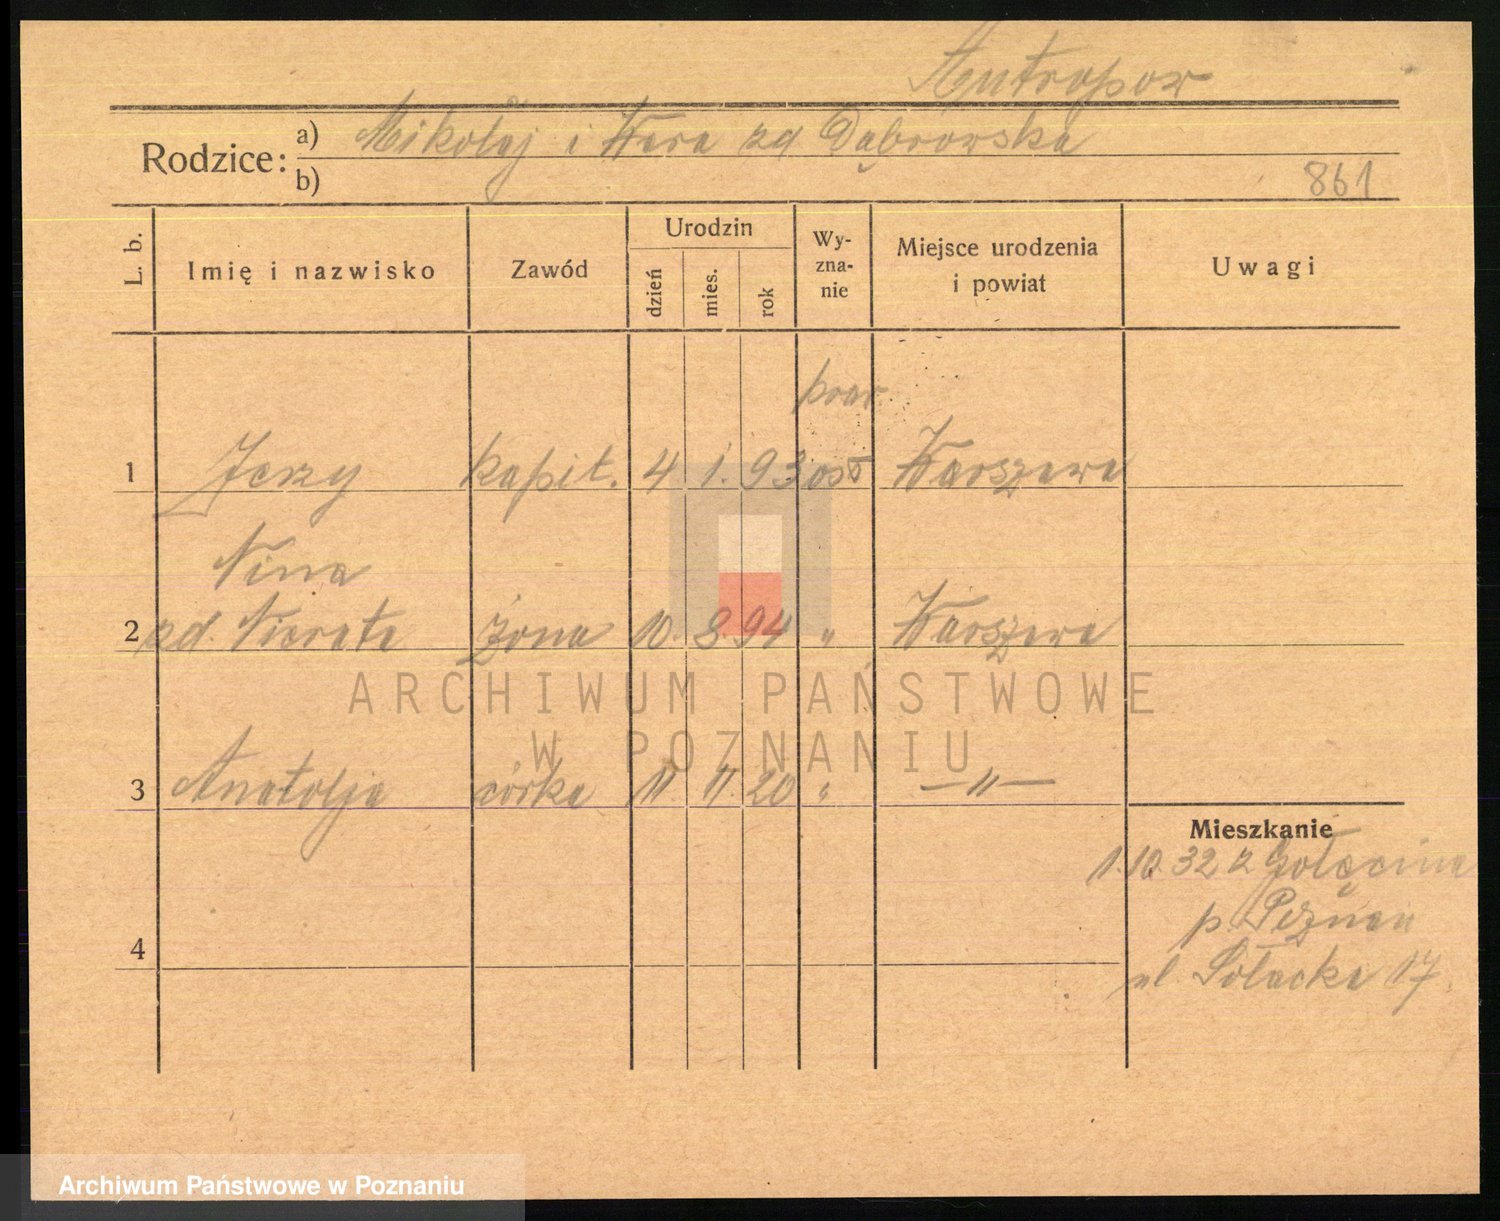 Antropow
Rodzice: a) Mikołaj i Wera zd Dąbrowska
b)
861
L. b. Imię i nazwisko Zawód Urodzin dzień mies. rok Wy-zna-nie Miejsce urodzenia i powiat Uwagi
praw
1 Jerzy kapit. 4 1. 93 osł Warszawa
Nina
2 zd. Nierata żona 10. 8. 94 " Warszawa
ARCHIWUM PAŃSTWOWE
W POZNANIU
3 Anatolja córka 11. 11. 20 " —"—
Mieszkanie
1.10.32 z Golęcina
p. Poznań
4
ul. Sołacka 17.
Archiwum Państwowe w Poznaniu